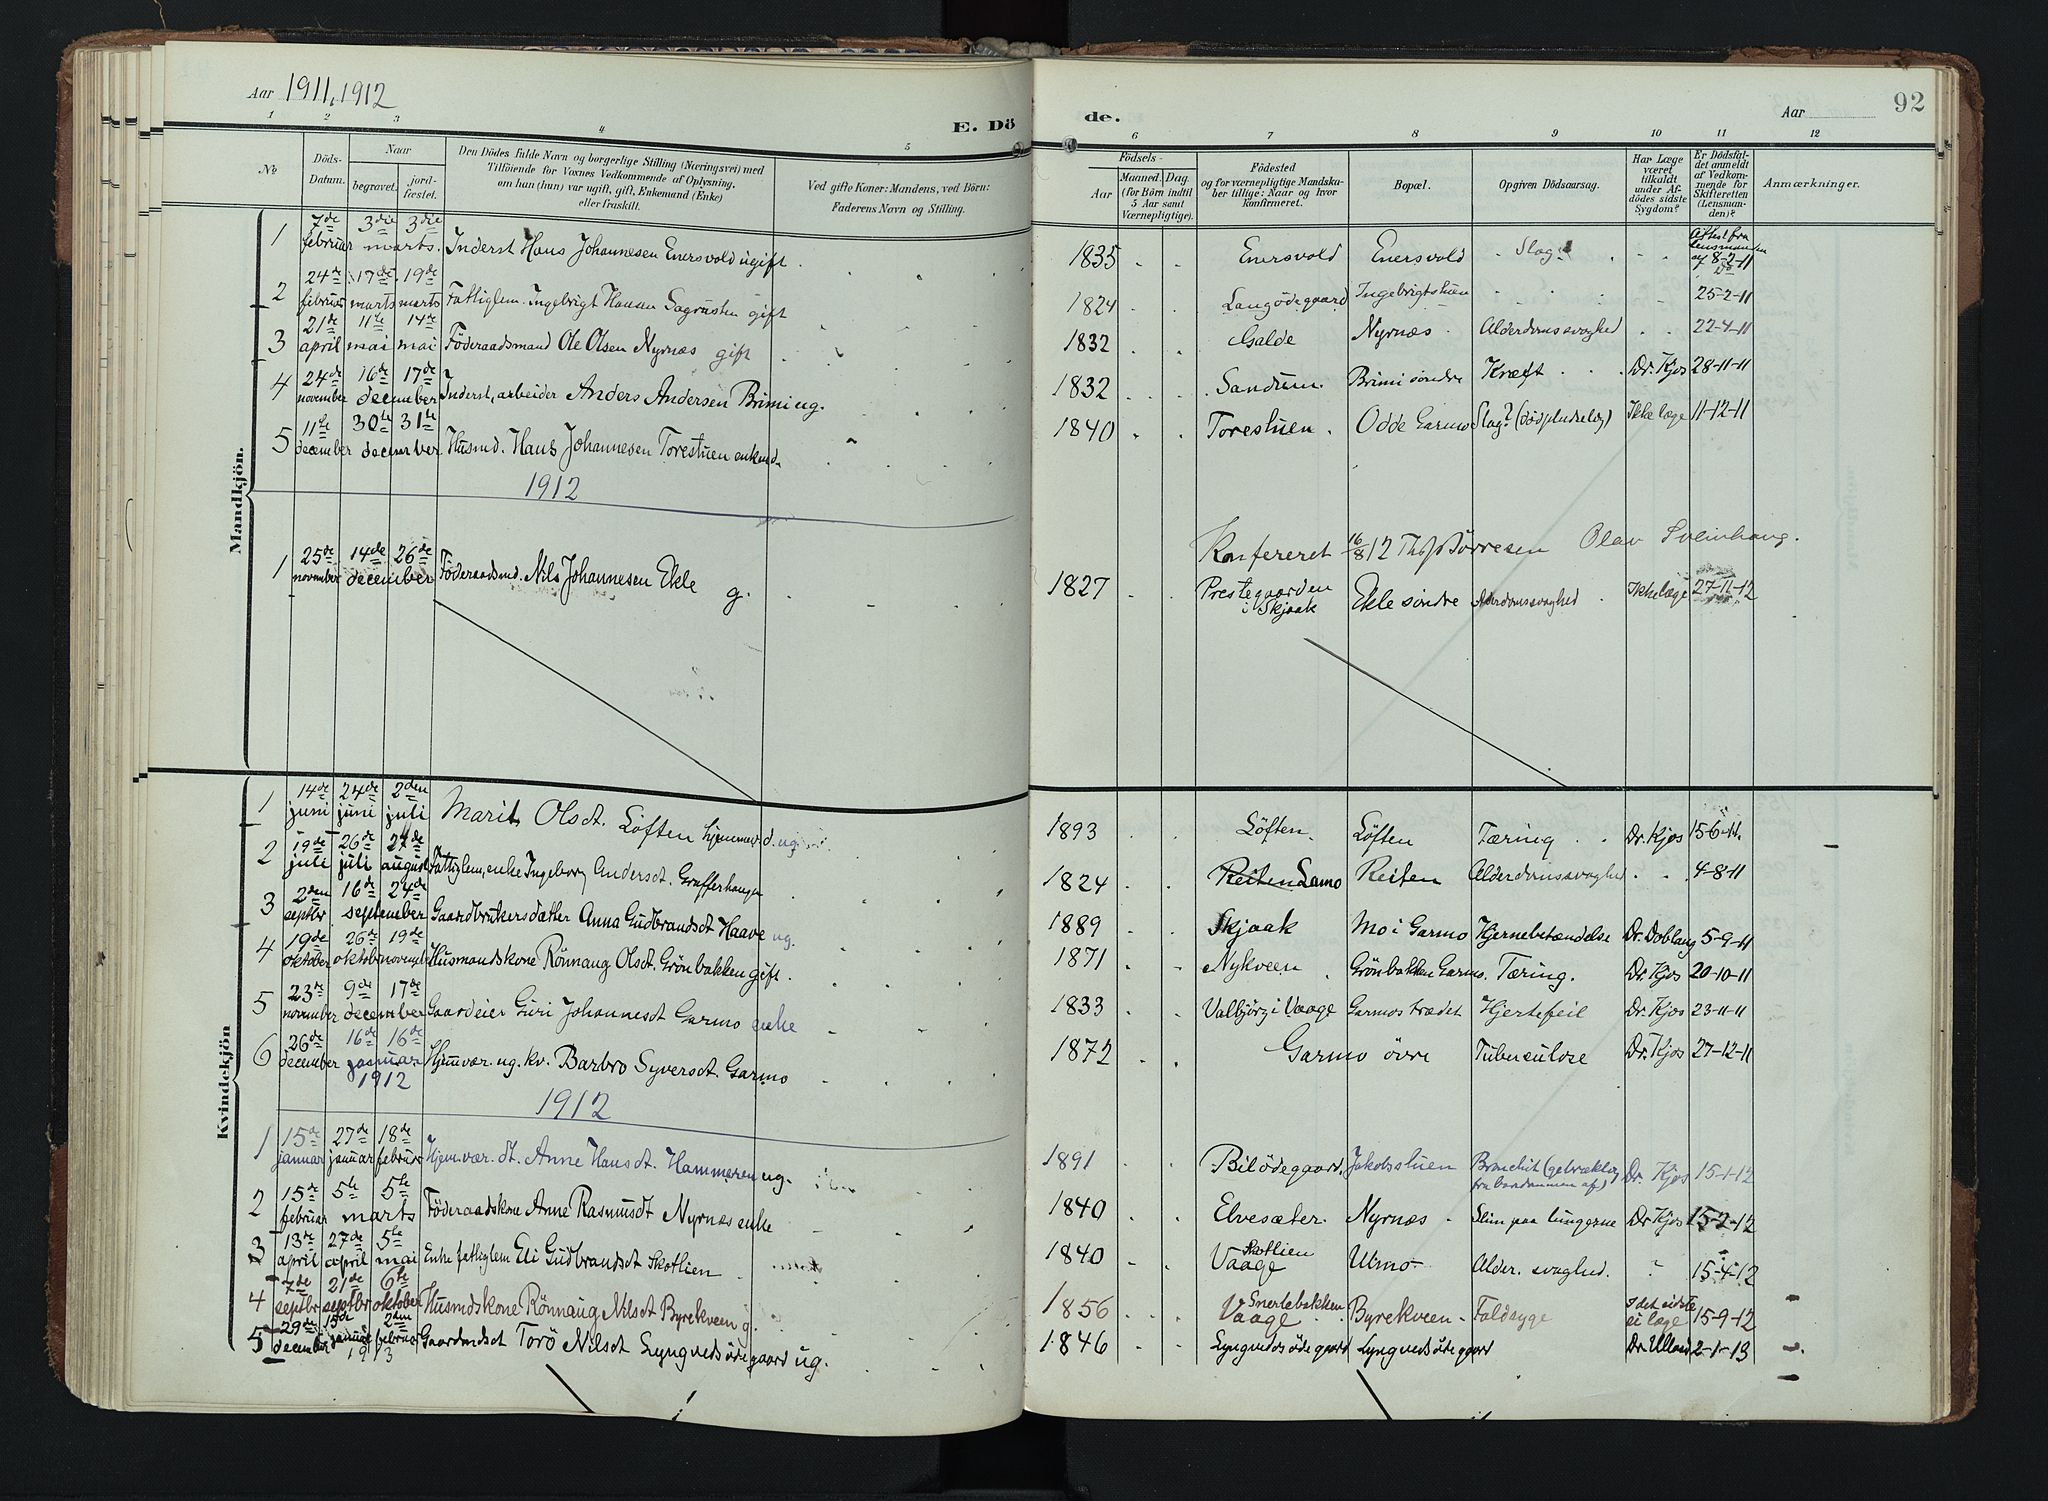 Aar 1911, 1912
E. Dö
de.
Aar
92
1 2 3 4 5 6 7 8 9 10 11 12
No
Döds-Datum.
Naar
begravet.
jord-fæstet.
Den Dödes fulde Navn og borgerlige Stilling (Næringsvei) med
Tilföiende for Voxnes Vedkommende af Oplysning,
om han (hun) var ugift, gift, Enkemand (Enke)
eller fraskilt.
Ved gifte Koner: Mandens, ved Börn:
Faderens Navn og Stilling.
Födsels-
Aar
Maaned. Dag.
(for Börn indtil
5 Aar samt
Værnepligtige).
Födested
og for værnepligtige Mandska-
ber tillige: Naar og hvor
konfirmeret.
Bopæl.
Opgiven Dödsaarsag.
Har Læge
været
tilkaldt
under Af-
dödes sidste
Sygdom?
Er Dödsfal-
det anmeldt
af Vedkom-
mende for
Skifteretten
(Lensman-
den)?
Anmærkninger.
Mandkjön.
1 7de februar 3die 3die marts. Inderst Hans Johannesen Enersvold ugift 1835 Enersvold Enersvold Slag? Attest fra lensmanden af 8-2-11
2 24de februar 17de marts 19de marts Fattiglem. Ingebrigt Hansen Sagrusten gift 1824 Langödegaard Ingebrigtstuen Do 25-2-11
3 21de april 11te mai 14de mai Föderaadsmand Ole Olsen Nyrnæs gift 1832 Galde Nyrnæs Alderdomssvaghed 22-4-11
4 24de november 16de 17de december Inderst, arbeider Anders Andersen Brimi ug. 1832 Sandum. Brimi söndre Kræft Dr. Kjos 28-11-11
5 11te december 30te 31te december Husmd. Hans Johannesen Torestuen enkemd. 1840 Torestuen. Odde Garmo Slag? (död pludselig) Ikke læge 11-12-11
1912
Konfereret 16/8 12 Olav Sveinhaug.
1 25de november 14de 26de december Föderaadsmd. Nils Johannesen Ekle g. 1827 Prestegaarden i Skjaak Ekle söndre Alderdomssvaghed Ikke læge 27-11-12
Kvindekjön
1 14de juni 24de juni 2den juli Marit Olsdt. Löften hjemmev. d. ug. 1893 Löften. Löften Tæring Dr. Kjos 15-6-11.
2 19de juli 26de juli 27de august Fattiglem, enke Ingeborg Andersdt. Grafferhaugen 1824 Reiten Lamo Reiten Alderdomssvaghed 4-8-11
3 2den septbr. 16de 24de september Gaardbrukersdatter Anna Gudbrandsdt Haave ug. 1889 Skjaak Mo i Garmo Hjernebetændelse Dr. Doblaug 5-9-11
4 19de oktober 26de oktob 19de novemb Husmandskone Rönnaug Olsdt. Grönbakken gift. 1871 Nykveen Grönbakken Garmo. Tæring. Dr. Kjos 20-10-11
5 23de november 9de 17de december Gaardeier Guri Johannesdt Garmo enke 1833 Valbjörg i Vaage Garmostrædet Hjertefeil Dr. Kjos 23-11-11
6 26de december 16de 16de januar 1912 Hjemvær. ug. kv. Barbro Syversdt. Garmo 1872 Garmo övre Tuberculose Dr. Kjos 27-12-11
1912
1 15de januar 27de januar 18de februar Hjem. vær. dt. Anne Hansdt. Hammeren ug. 1891 Bilödegaard. Jakobsstuen Dr. Kjos 15-1-12
2 15de februar 5te 5te marts Föderaadskone Anne Rasmusdt Nyrnæs enke 1840 Elvesæter. Nyrnæs Slim paa lungerne Dr Kjos 15-2-12
3 13de april 27de april 5te mai Enke fattiglem Eli Gudbrandsdt Skotlien 1840 Skotlien Vaage Ulmo Alder. svaghed. ? 15-4-12
4 7de septbr 21de septbr 6te oktober Husmdskone Rönnaug Nilsdt Byrekveen g. 1856 Snerlebakken Vaage Byrekveen Faldsyge I det sidste ei læge 15-9-12
5 29de december 15de januar 2den februar 1913 Torö Nilsdt Lyngvedsödegaard ug. 1846 Lyngvedsödegaard Lyngvedsödegaard Dr. 2-1-13